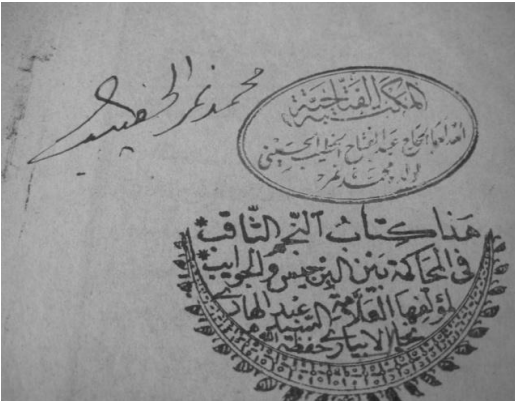 محمد نمر الخطيب
المكتبة الفتاحية
الحاج عبد الفتاح الخطيب الحسيني
محمد نمر
هَذا كِتابُ النَّجم الثَّاقب *
في المحاكمة بَيْنَ البرجيس والجوايب *
لمؤلفها العَلّامة السيد عبد الهادي
نجا الابياري حفظه الله